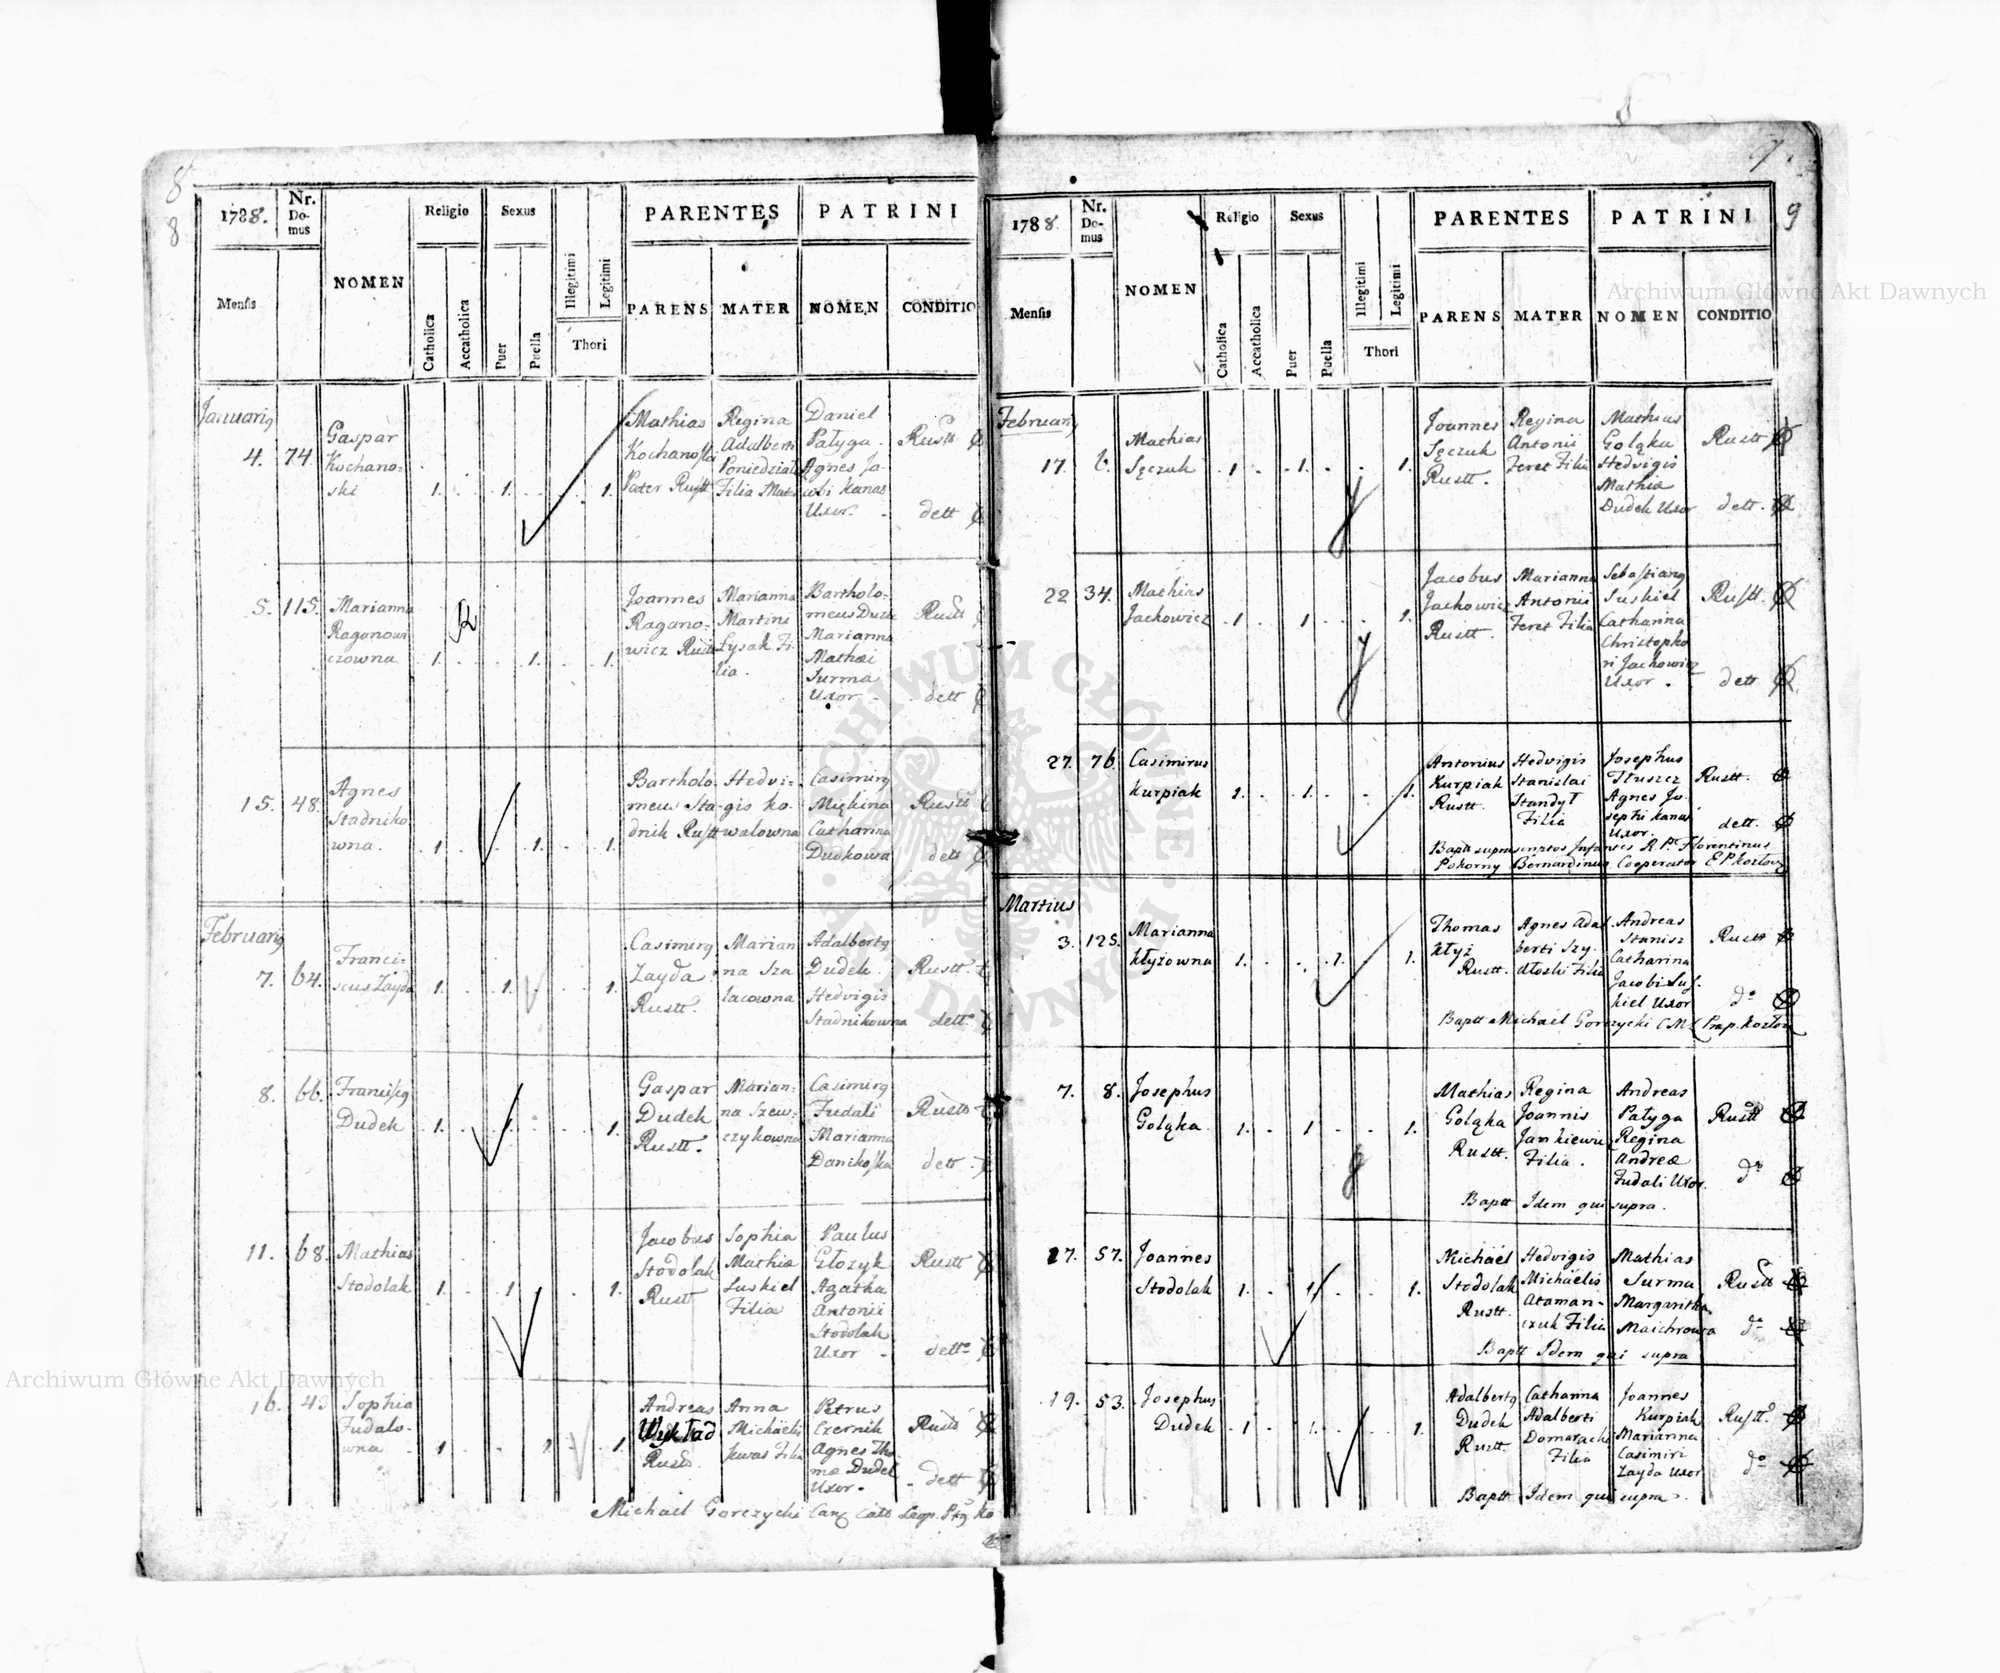 8
8
1788.
Nr. Do- mus
NOMEN
Religio
Sexus
Illegitimi
Legitimi
PARENTES
PATRINI
Mensis
Catholica
Accatholica
Puer
Puella
Thori
PARENS
MATER
NOMEN
CONDITIO
Januariq
4. 74.
Gaspar
Kochano=
ski
1. 1. 1.
Mathias
Kochanoski
Pater Rustt
Regina
Adalberti
Poniedzial
Filia Mat
Daniel
Pałyga.
Agnes Ja-
cobi Kanas
Uxor.
Rustt
dett
5. 115.
Marianna
Raganowi
czowna
1. 1. 1.
Joannes
Ragano=
wicz Rustt
Marianna
Martini
Łysak Fi-
lia.
Bartholo-
meus Dudek
Marianna
Mathæi
Surma
Uxor
Rustt
dett
15. 48.
Agnes
Stadniko
wna.
1. 1. 1.
Bartholo
meus Sta-
dnik Rustt
Hedvi-
gis Ko-
walowna
Casimirq
Miękina
Catharina
Dudkowa
Rustt
dett
Februariq
7. 64.
Franci=
scus Zayda
1. 1. 1.
Casimirq
Zayda
Rustt.
Marian
na Sza
łacowna
Adalbertq
Dudek.
Hedvigis
Stadnikowna
Rustt.
dett.
8. 66.
Franciscq
Dudek
1. 1. 1.
Gaspar
Dudek
Rustt.
Marian=
na Szew=
czykowna
Casimirq
Fudali
Marianna
Danikoska
Rustt
dett.
11. 68.
Mathias
Stodolak
1. 1. 1.
Jacobus
Stodolak
Rustt
Sophia
Mathiæ
Suskiel
Filia
Paulus
Głozyk
Agatha
Antonii
Stodolak
Uxor
Rustt
detto
16. 43
Sophia
Fudalo-
wna
1. 1. 1.
Andreas
Wykład
Rustt.
Anna
Michaelis
Kuras Filia
Petrus
Czernik
Agnes Tho
mæ Dudek
Uxor.
Rustt
dett
Michael Gorczycki Canq Cath Leop. Ppq Ko
9
1788.
Nr. Do- mus
NOMEN
Religio
Sexus
Illegitimi
Legitimi
PARENTES
PATRINI
Mensis
Catholica
Accatholica
Puer
Puella
Thori
PARENS
MATER
NOMEN
CONDITIO
Februarq
17. 6.
Mathias
Sęczuk
1. 1. 1.
Joannes
Sęczuk
Rustt.
Regina
Antonii
Feret Filia
Mathias
Goląka
Hedvigis
Mathiæ
Dudek Uxor
Rustt
dett.
22 34.
Mathias
Jachowicz
1. 1. 1.
Jacobus
Jachowicz
Rustt.
Marianna
Antonii
Feret Filia
Sebastianq
Suskiel
Catharina
Christopho
ri Jachowicz
Uxor.
Rustt.
dett
27. 76.
Casimirus
Kurpiak
1. 1. 1.
Antonius
Kurpiak
Rustt.
Hedvigis
Stanislai
Standył
Filia
Josephus
Tłuszcz
Agnes Jo-
sephi Kanas
Uxor.
Rustt.
dett.
Baptt suprascriptos Infantes R. P. Florentinus
Pokorny Bernardinus Cooperator E P Kozlov
Martius
3. 125.
Marianna
Kłyżowna
1. 1. 1.
Thomas
Kłyż
Rustt.
Agnes Adal
berti Szy-
dłoski Filia
Andreas
Stanisz
Catharina
Jacobi Sus-
kiel Uxor
Rustt
do
Baptt Michael Gorczycki C M L Prap. Kozłow
7. 8.
Josephus
Goląka
1. 1. 1.
Mathias
Goląka
Rustt.
Regina
Joannis
Jankiewicz
Filia.
Andreas
Pałyga
Regina
Andreæ
Fudali Uxor.
Rustt
do
Baptt Idem qui supra.
17. 57.
Joannes
Stodolak
1. 1. 1.
Michael
Stodolak
Rustt.
Hedvigis
Michaelis
Ataman-
czuk Filia
Mathias
Surma
Margaritha
Maichrowa
Rustt
do
Baptt Idem qui supra
19. 53.
Josephus
Dudek
1. 1. 1.
Adalbertq
Dudek
Rustt.
Catharina
Adalberti
Domaracki
Filia
Joannes
Kurpiak
Marianna
Casimiri
Zayda Uxor
Rustt.
do
Baptt Idem qui supra.
Archiwum Główne Akt Dawnych
Archiwum Główne Akt Dawnych
ARCHIWUM GŁÓWNE AKT DAWNYCH